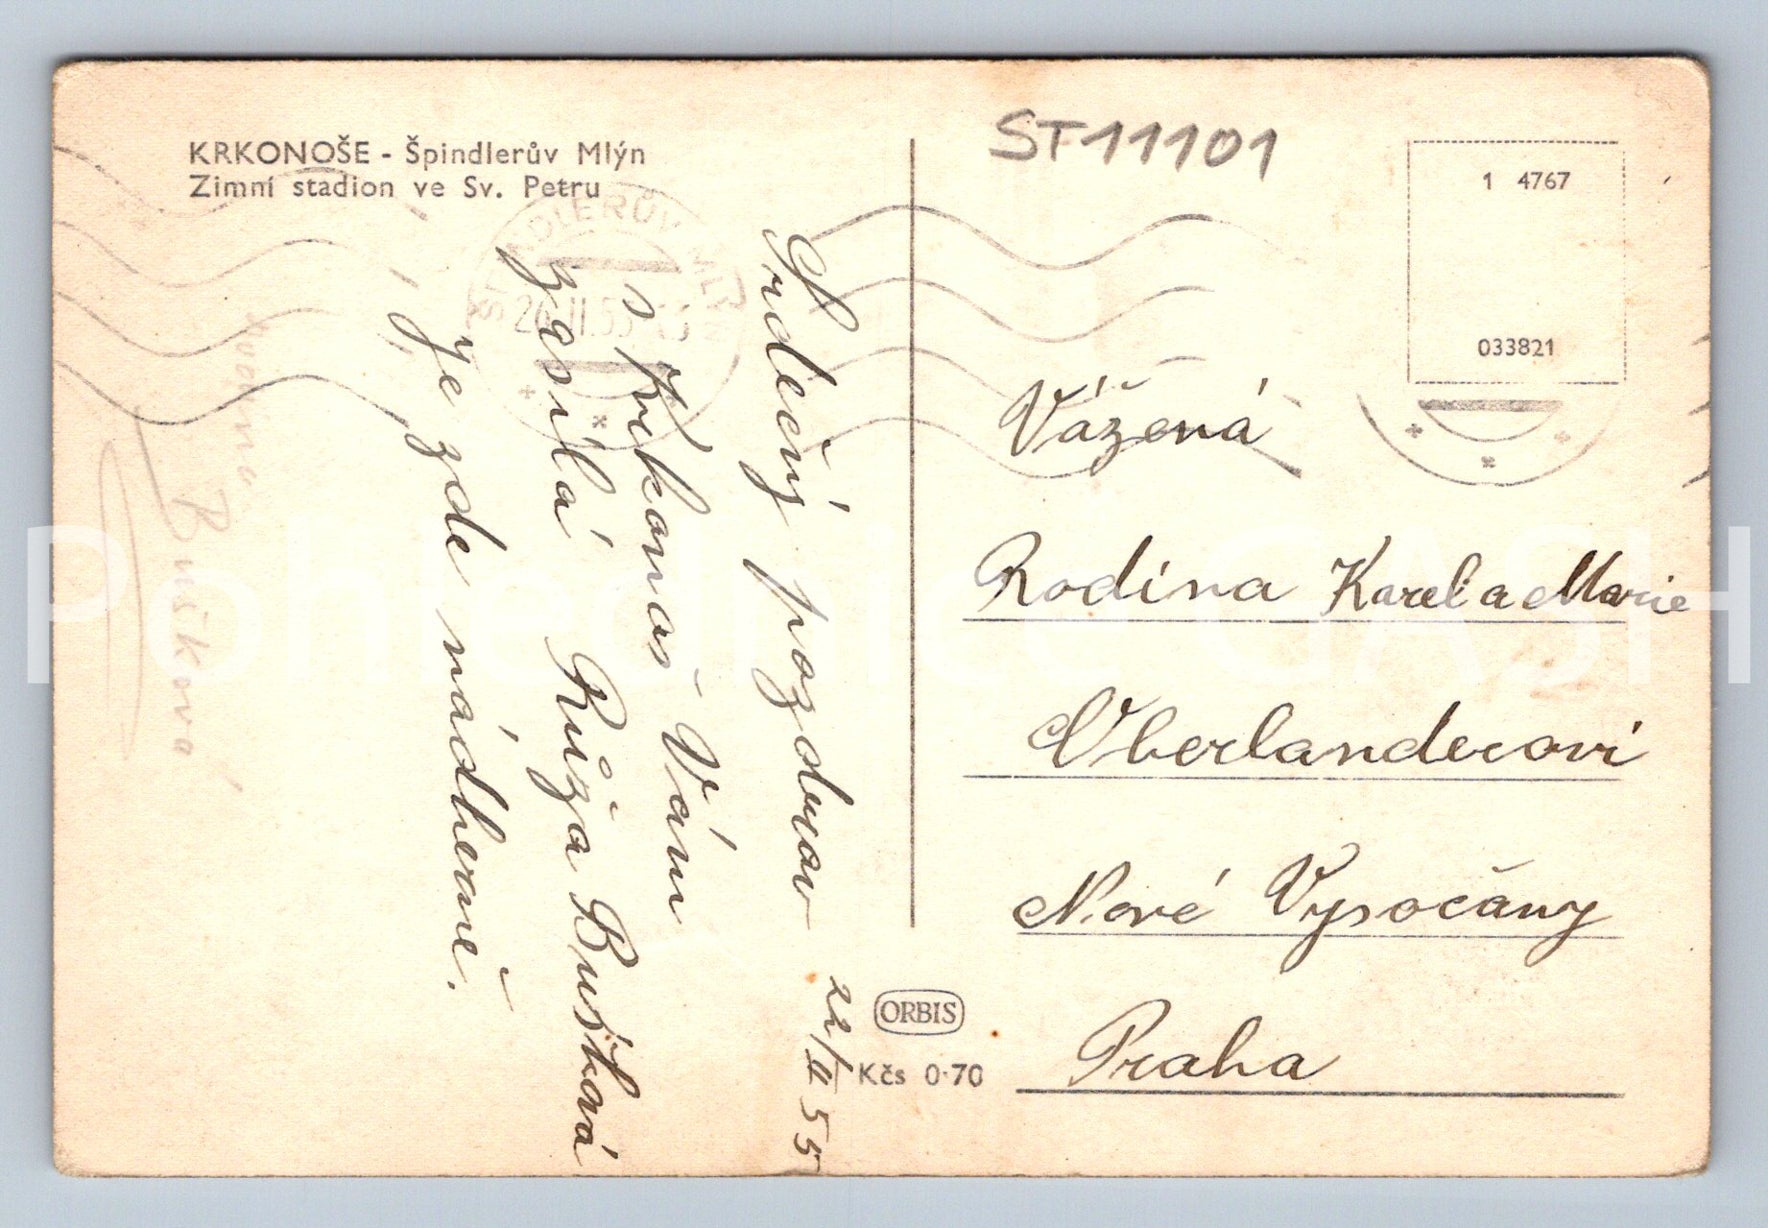 KRKONOŠE - Špindlerův Mlýn
Zimní stadion ve Sv. Petru
ST11101
1 4767
033821
ŠPINDLERŮV MLÝN
Srdečný pozdrav
s Krkonoš Vám
zasílá Růža Bušková
je zde nádherně.
22/II 55
Vážená
Rodina Karel a Marie
Oberlanderovi
Nové Vysočany
Praha
ORBIS
Kčs 0·70
Bušková
Pohlednice GASH